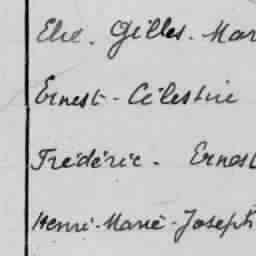 Elie. Gilles. Mar
Ernest - Célestine
Frédéric. Ernest
Henri-Marie-Joseph